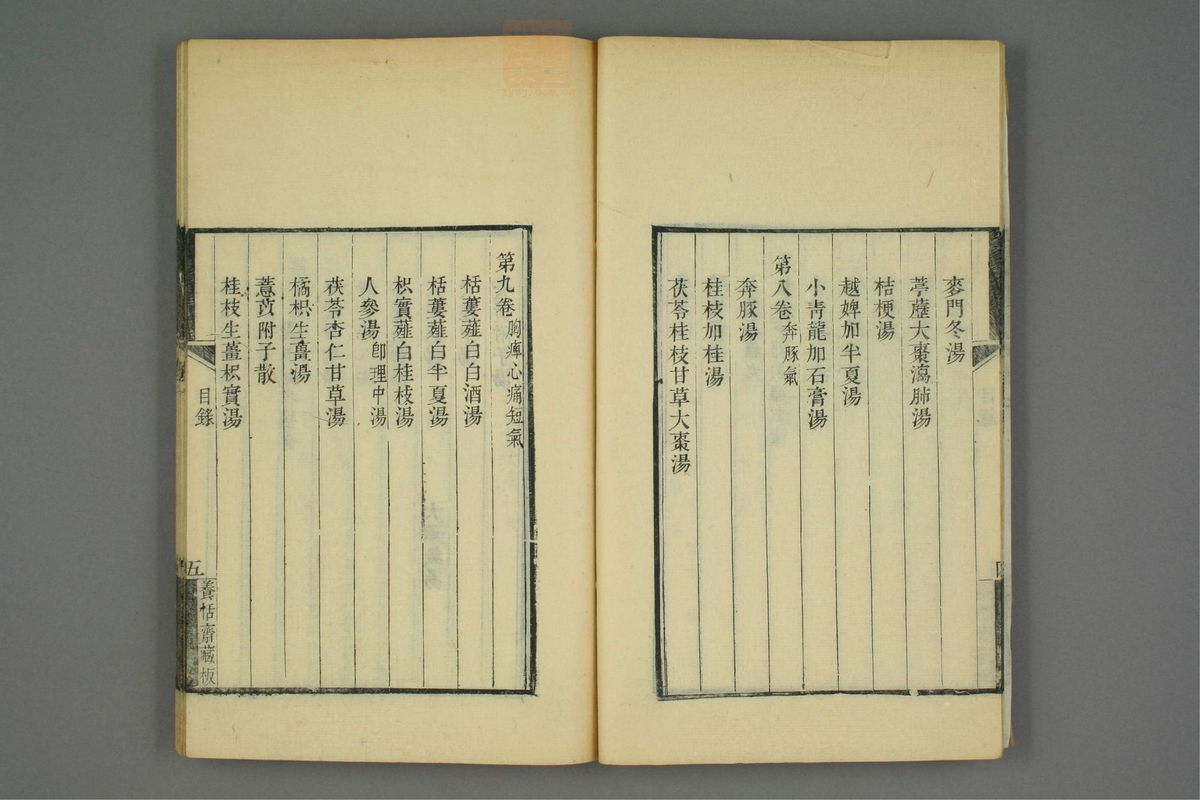 麥門冬湯
葶藶大棗瀉肺湯
桔梗湯
越婢加半夏湯
小青龍加石膏湯
第八卷 奔豚氣
奔豚湯
桂枝加桂湯
茯苓桂枝甘草大棗湯
第九卷 胸痺心痛短氣
栝蔞薤白白酒湯
栝蔞薤白半夏湯
枳實薤白桂枝湯
人參湯 卽理中湯
茯苓杏仁甘草湯
橘枳生薑湯
薏苡附子散
桂枝生薑枳實湯
目錄
五
養恬齋藏板